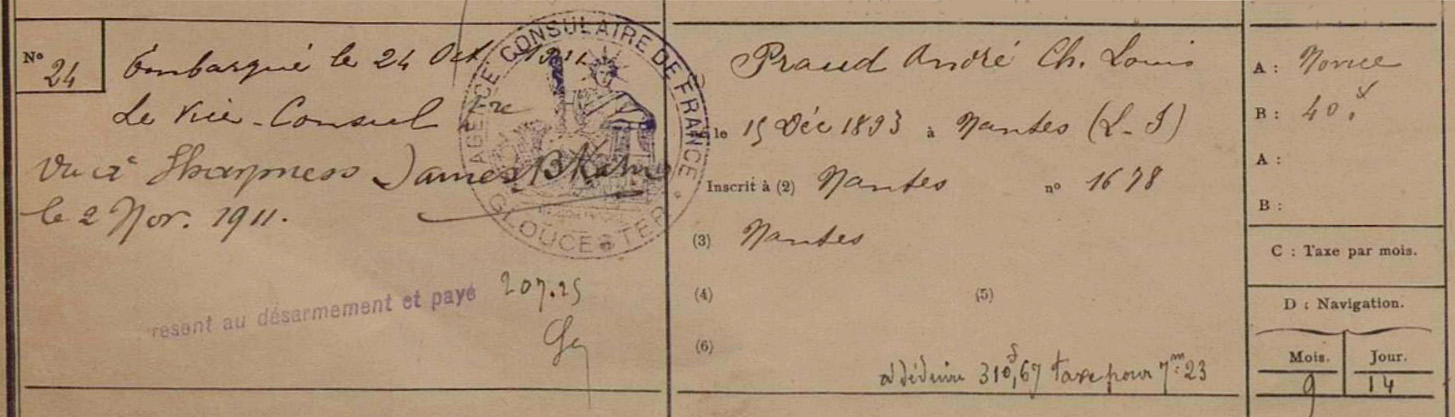 N° 24
Embarqué le 24 Oct 1911
Le Vice-Consul
AGENCE CONSULAIRE DE FRANCE
GLOUCESTER
Vu à Sharpness James
le 2 Nov. 1911.
resent au désarmement et payé 207.25
Praud André Ch. Louis
le 15 Déc 1893 à Nantes (L-I)
Inscrit à (2) Nantes n° 1678
(3) Nantes
(4) (5)
(6)
à déduire 310f,67 taxe pour 7m 23
A : Novice
B : 40f
A :
B :
C : Taxe par mois.
D : Navigation.
Mois. Jour.
9 14